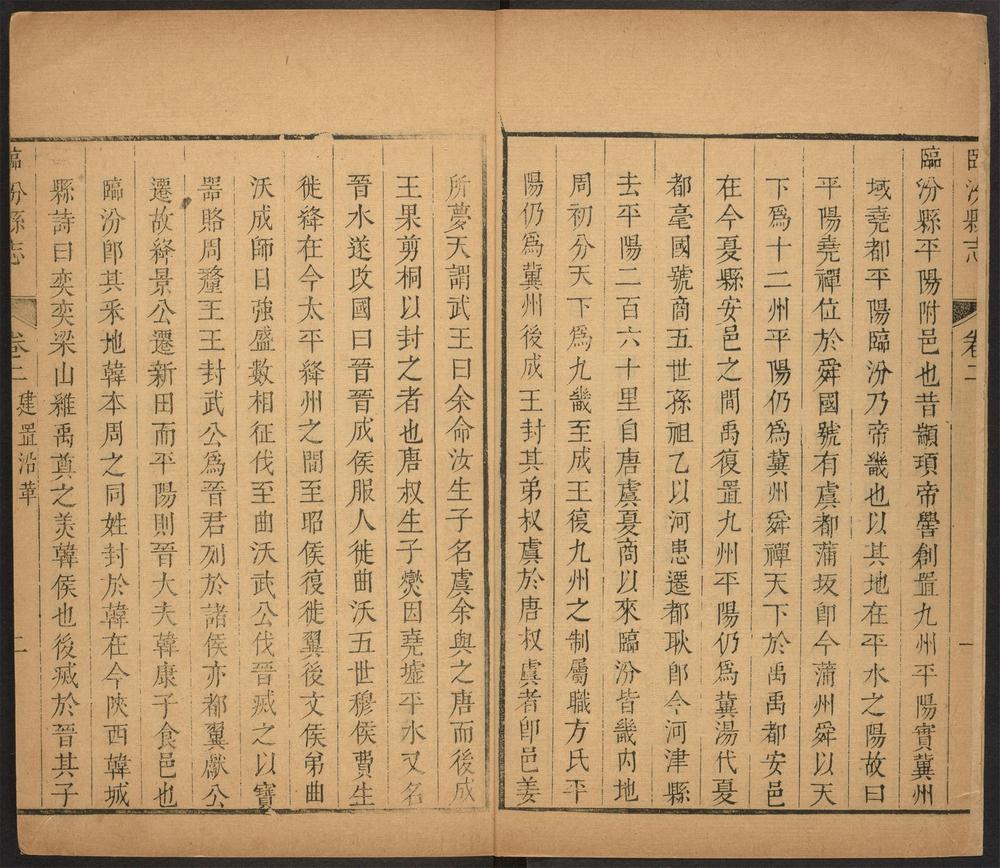 臨汾縣志
卷二
一
臨汾縣平陽附邑也昔顓頊帝嚳創置九州平陽實冀州
域堯都平陽臨汾乃帝畿也以其地在平水之陽故曰
平陽堯禪位於舜國號有虞都蒲坂卽今蒲州舜以天
下爲十二州平陽仍爲冀州舜禪天下於禹禹都安邑
在今夏縣安邑之間禹復置九州平陽仍爲冀湯代夏
都亳國號商五世孫祖乙以河患遷都耿卽今河津縣
去平陽二百六十里自唐虞夏商以來臨汾皆畿内地
周初分天下爲九畿至成王復九州之制屬職方氏平
陽仍爲冀州後成王封其弟叔虞於唐叔虞者卽邑姜
所夢天謂武王曰余命汝生子名虞余與之唐而後成
王果剪桐以封之者也唐叔生子爕因堯墟平水又名
晉水遂改國曰晉晉成侯服人徙曲沃五世穆侯費生
徙絳在今太平絳州之間至昭侯復徙翼後文侯弟曲
沃成師日強盛數相征伐至曲沃武公伐晉滅之以寶
噐賂周釐王王封武公爲晉君列於諸侯亦都翼獻公
遷故絳景公遷新田而平陽則晉大夫韓康子食邑也
臨汾卽其釆地韓本周之同姓封於韓在今陜西韓城
縣詩曰奕奕梁山維禹奠之美韓侯也後滅於晉其子
臨汾縣志
卷二
建置沿革
二